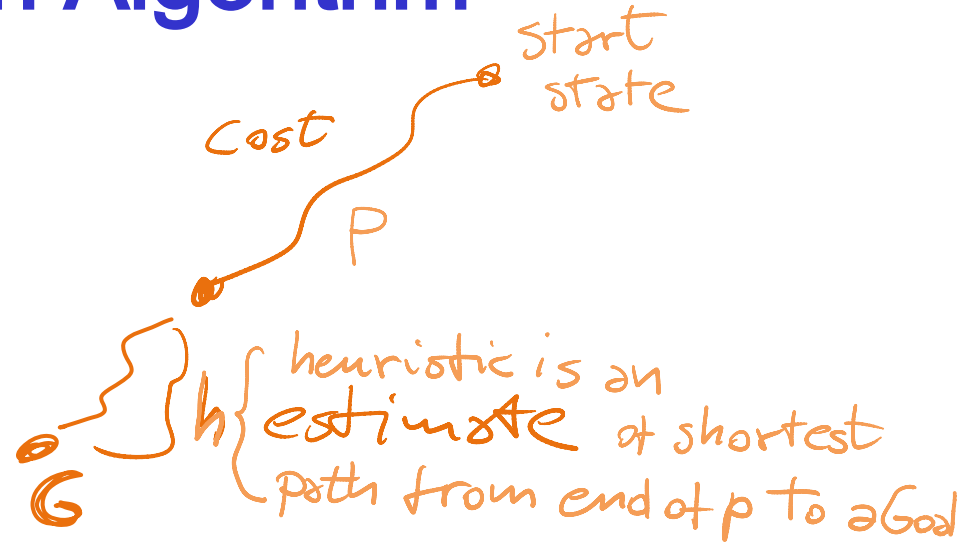 Algorithm
start
state
cost
P
h
heuristic is an
estimate of shortest
path from end of p to a Goal
G